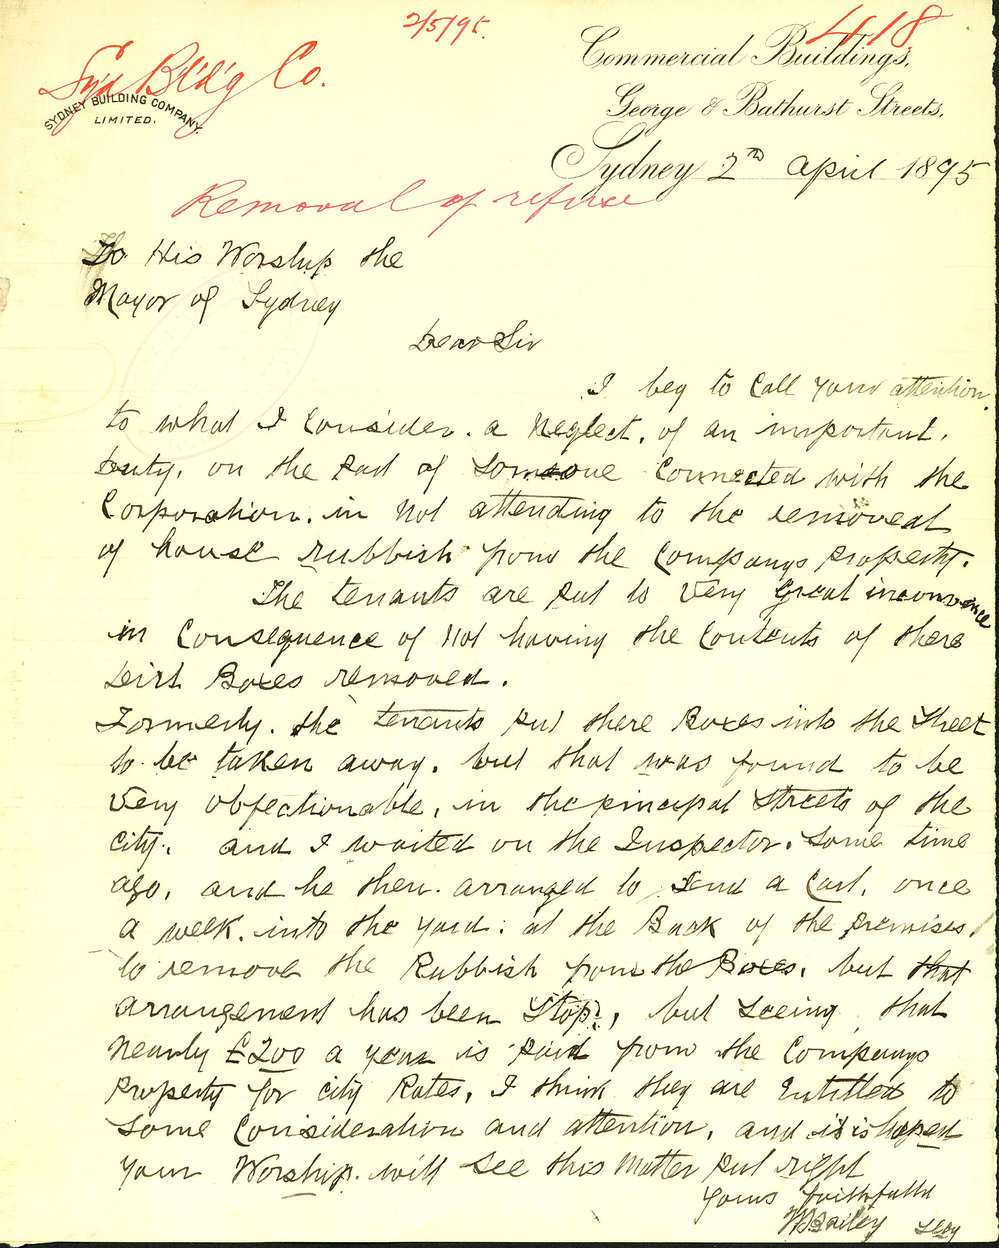 2/5/95.
418.
Syd Bld'g Co.
SYDNEY BUILDING COMPANY.
LIMITED.
Commercial Buildings,
George & Bathurst Streets,
Sydney 2nd April 1895
Removal of refuse
To His Worship the
Mayor of Sydney
Dear Sir
I beg to Call your attention.
to what I Consider. a Neglect. of an important.
Duty. on the part of someone Connected with the
Corporation. in Not attending to the removeal
of house rubbish from the Companys property.
The tenants are put to Very great inconvence
in Consequence of Not having the Contents of there
Dirt Boxes removed.
Formerly. the tenants put there Boxes into the Street
to be taken away. but that was found to be
Very objectionable, in the principal Streets of the
City. and I waited on the Inspector. some time
ago. and he then. arranged to send a Cart. once
a week. into the yard. at the Back of the premises.
to remove the Rubbish from the Boxes. but that
arrangement has been Stop., but seeing that
Nearly £200 a year is paid from the Companys
property for City Rates, I think they are Entitled to
some Consideration and attention. and it is hoped
your Worship will see this Matter put right
Yours faithfully
Bailey Secy